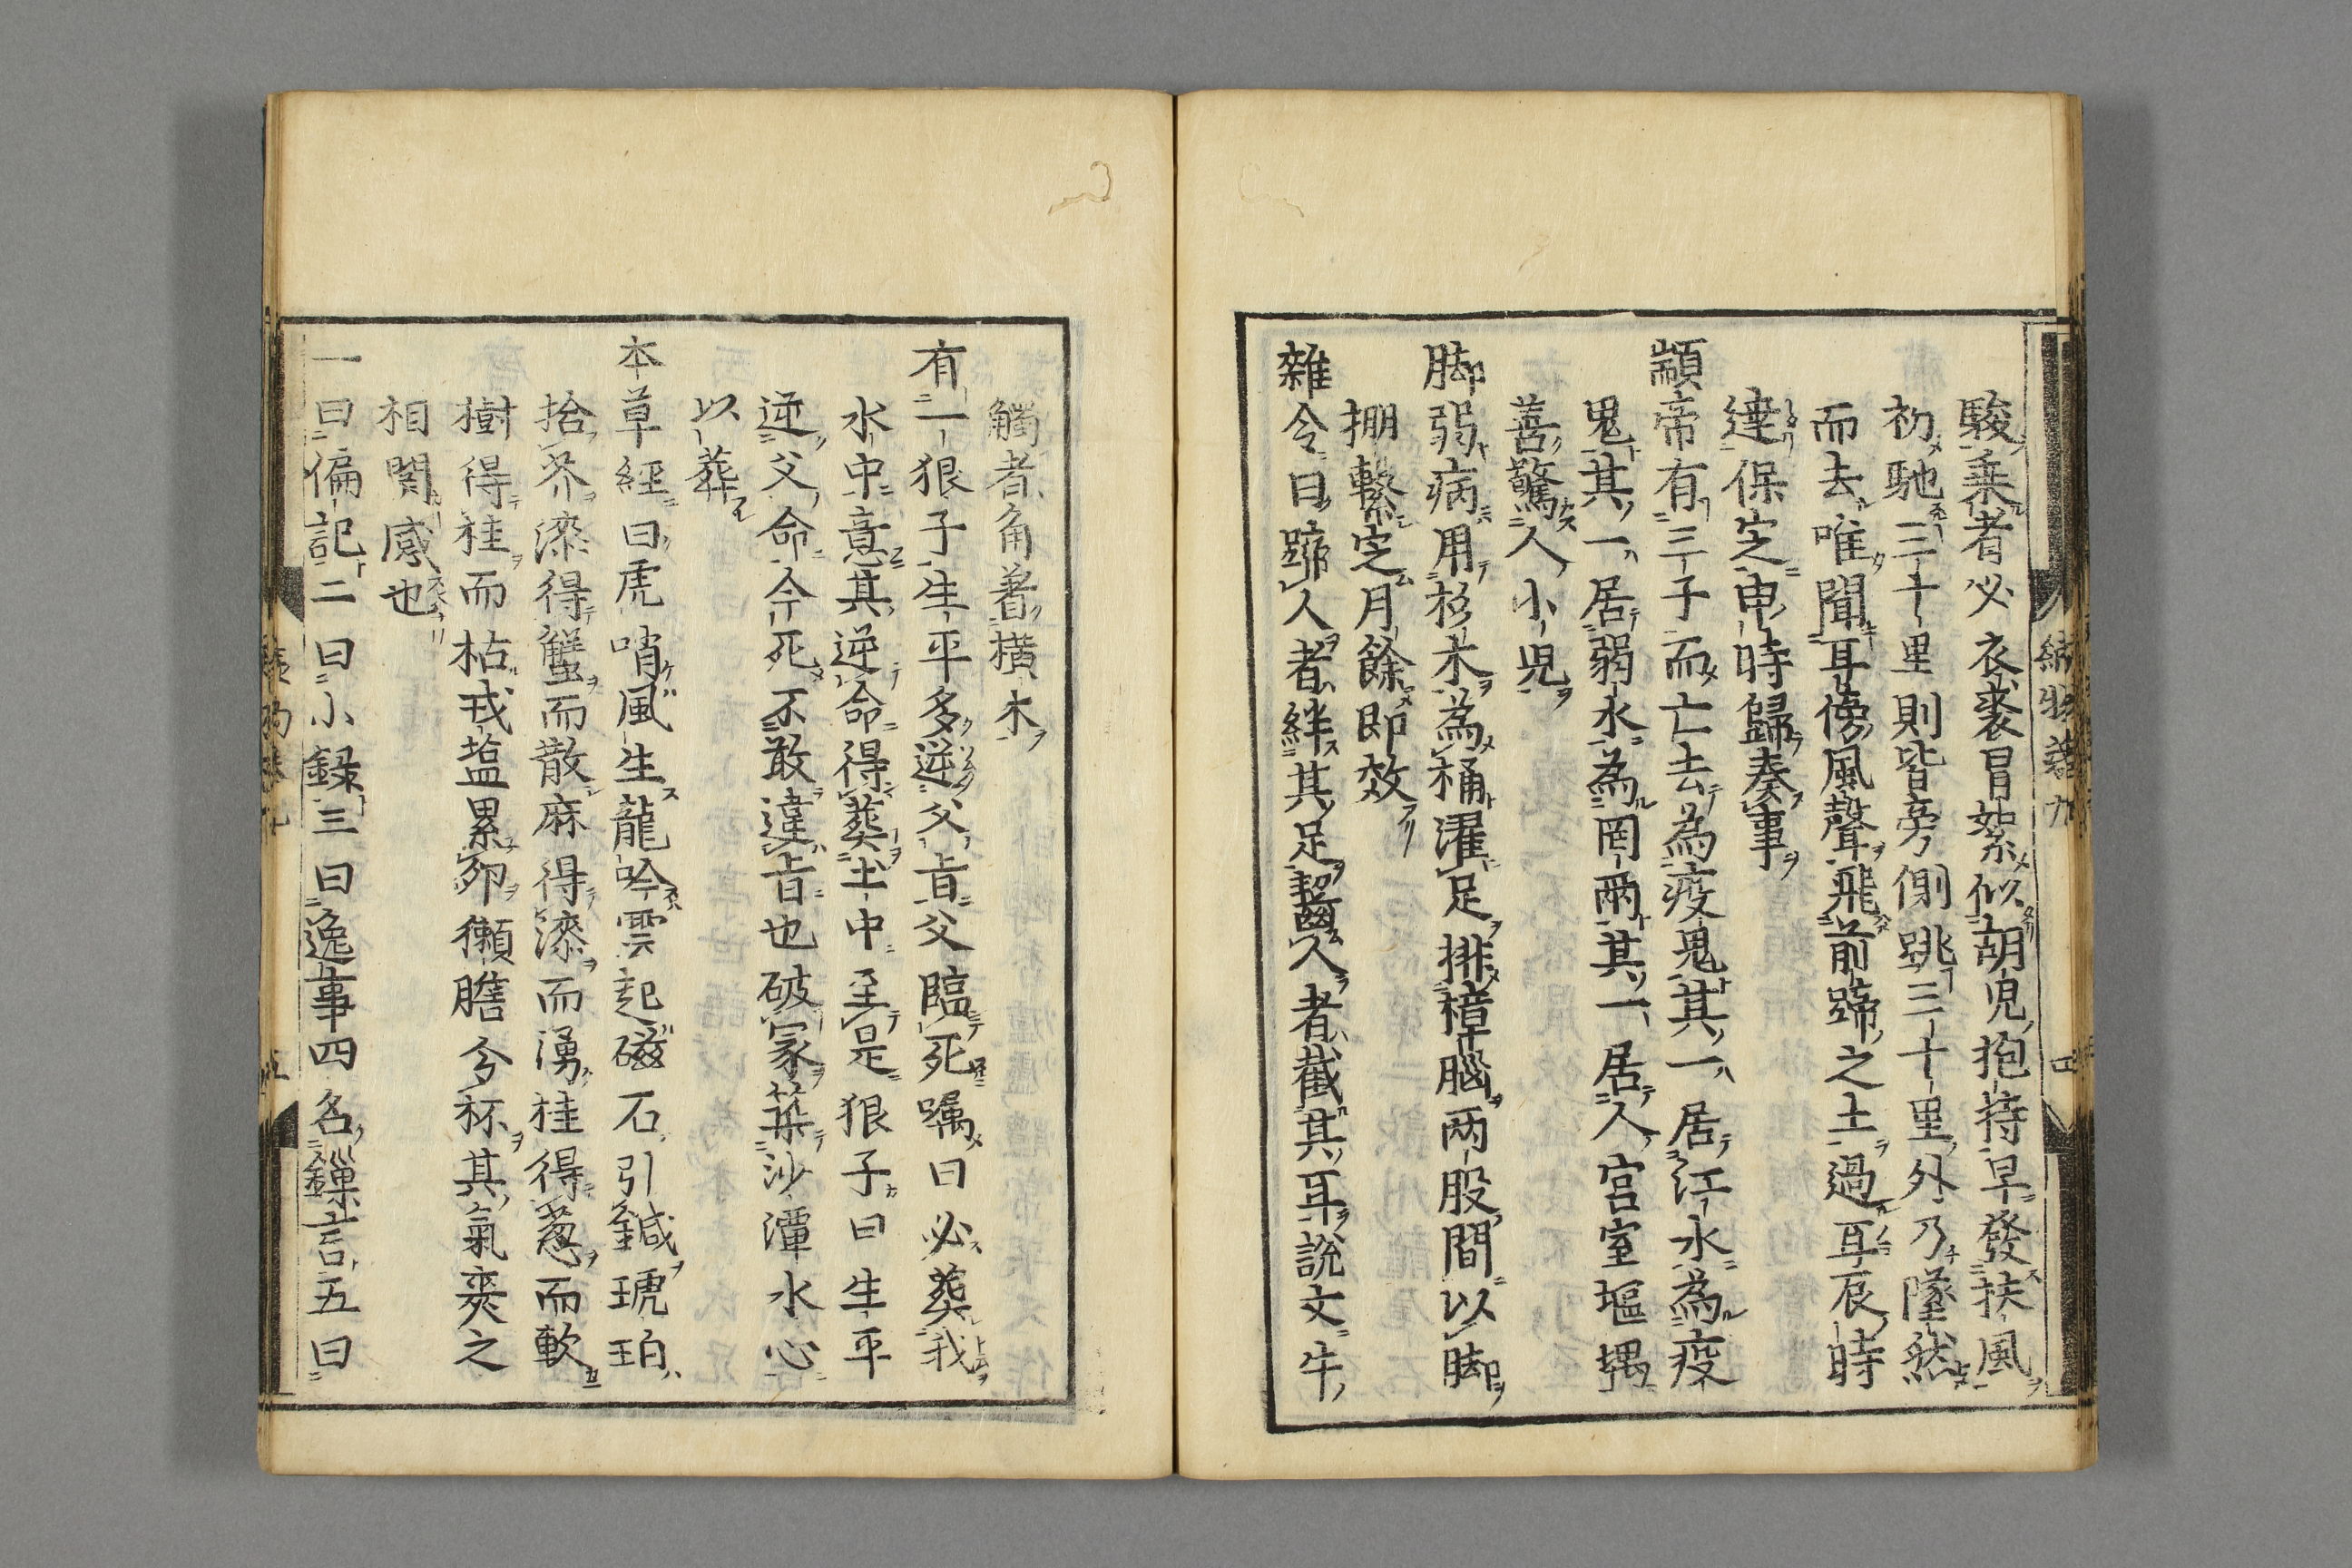 駿乗者必衣裘冒絮似胡児抱持早發扶風
初馳三十里則皆旁側跳三十里外乃墜然
而去唯聞耳傍風聲飛前蹄之土過耳辰時
達保定申時歸奏事
顓帝有三子而亡去為疫鬼其一居江水為疫
鬼其一居弱水為罔兩其一居人宮室塸堣
善驚人小児
脚弱病用杉木為桶濯足排樟腦两股間以脚
掤繫定月餘即效
雜令曰蹄人者絆其足齧人者截其耳説文牛
觸者角着横木
有一狠子生平多逆父旨父臨死嘱曰必葬我
水中意其逆命得葬土中至是狠子曰生平
逆父命今死不敢違旨也破家築沙潭水心
以葬
本草經曰虎哨風生龍吟雲起磁石引鍼琥珀
拾芥漆得蟹而散麻得漆而湧桂得葱而軟
樹得桂而枯戎塩累夘獺膽兮杯其氣爽之
相関感也
一曰偏記二曰小録三曰逸事四名鏁言五曰